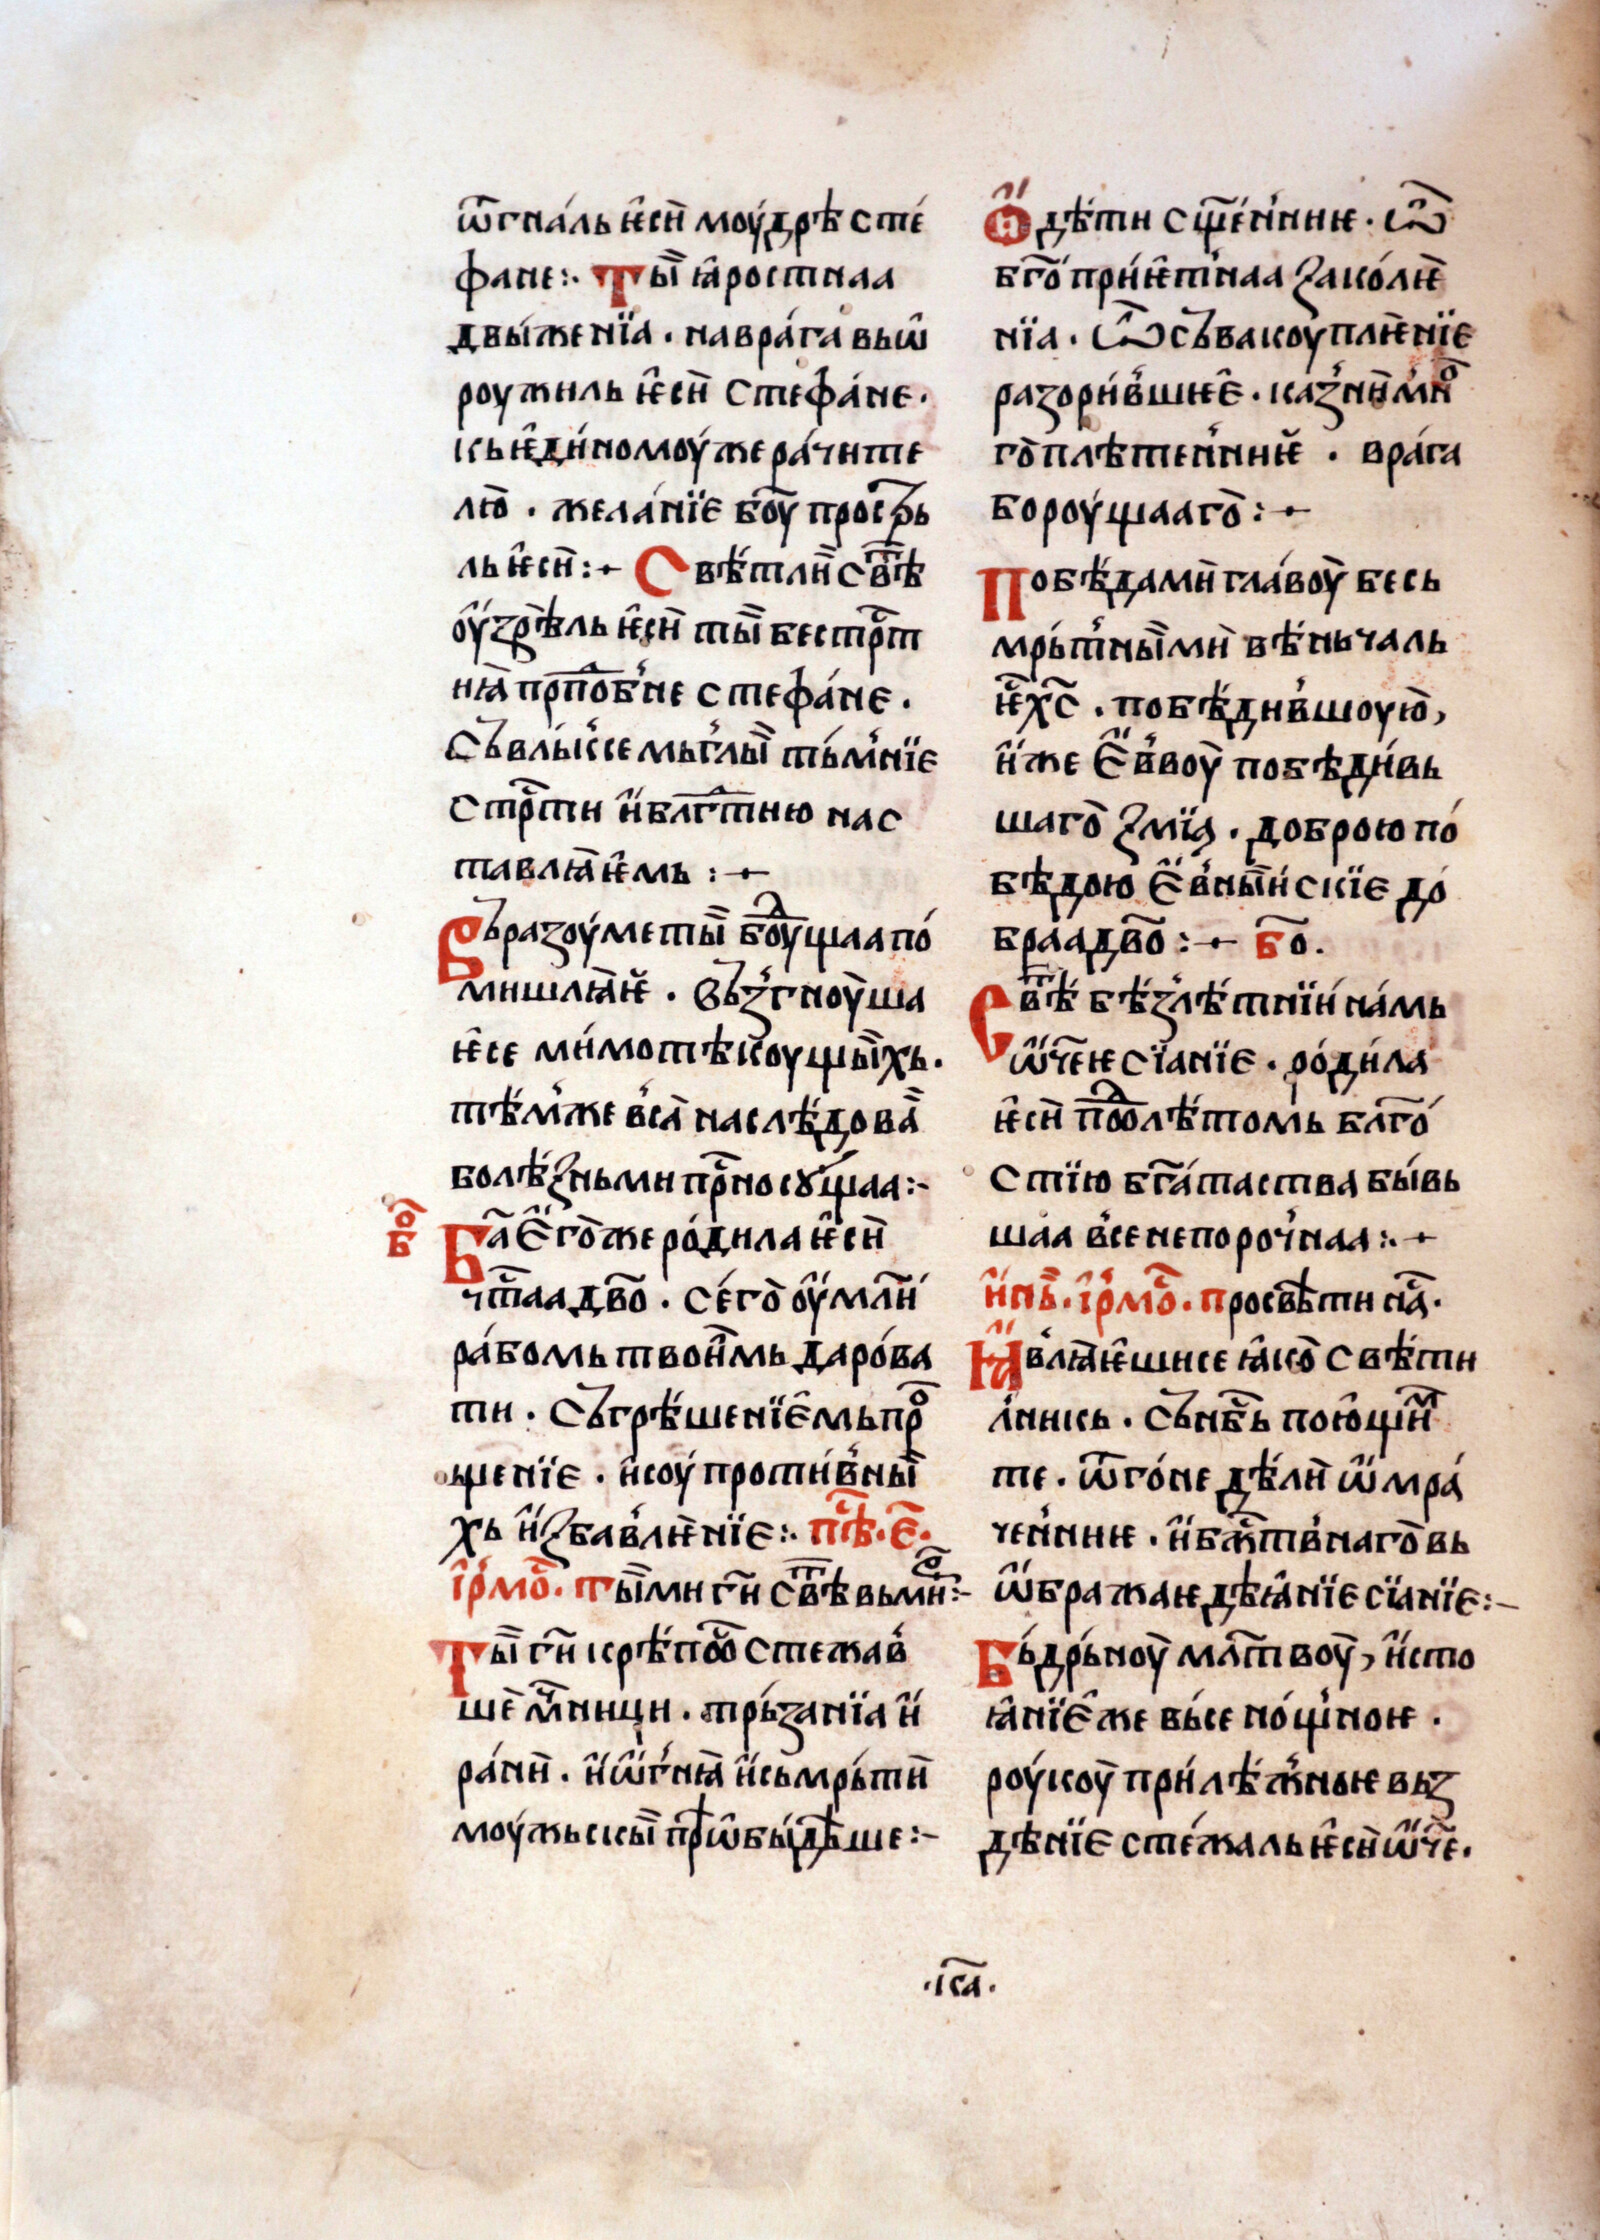 ѿгна́ль ѥ҆сѝ моу́дрѣ сте́
фане:· Ты̏ ꙗ҆́ростнаа
двы́женїа · на вра́га вьѡ
роужиль ѥ҆сѝ стефа́не ·
кь ѥ҆ди́номоу́же ра́чите
лю̀ · жела́нїе бо҃у простⷬь
ль ѥ҆сѝ :· Свѣ́тлѝ свⷮѣ
оу҆зрѣ̀ль ѥ҆сѝ ты̏ бестрⷭт
нꙗ̀ прпⷣобне стефа́не ·
Съвлы́кⸯсе мьглы̏ ть́мⸯнїе
стрⷭти и҆ блгⷣтию нас
тавлꙗ̀ѥ҆мь :·
Въразоу́ме ты̏ бⷣоущаа по́
мишлꙗ̀ѥ · въз́гноу̀ша
ѥ҆се ми́мотѣкоущы̏хь ·
тѣ́мⸯже всꙗ̀ наслѣ́дова̏
болѣ́зньми прⷭносу́щаа :·
бо
Ба҃ Е҆го̀же ро́дила ѥ҆сѝ
чⷭтаа дв҃о · Се́го̀ оу҆млⷭи́
ра́бомь твои̏мь даро́ва
ти · Съгрѣ́шенїе҆мь про
ь́щенїе · и҆ соу́проти́вⸯны̏
хь и҆збавⸯлѥ̀нїе:· пⷭѣ · е҃ ·
і҆рмоⷭ · Ты̏ми гⷭи свⷮѣ вьмнⷪ :·
Ты̏ гⷭи крѣ́поⷭ стежавⸯ
шѐ мⷱници · трь́занїа и҆
ра́нѝ · и҆ ѡ҆гнꙗ̀ и҆ сьмрь́тѝ
моу́жьскы̏ прѣѡ҆бы́дѣше :·
И҆ дѣ́ти сщ҃е́нⸯниѥ · Ѿ
бг҃о́прїѥ́тⸯнаа зако́лѥ̀
нїа · Ѿ съвакоуплѥ̀нїе
разори́вⸯшиѥ҆ · ка́знѝ мнⷪ
го̀плѣтенⸯниѥ̏ · вра́га
бороу́щааго̀ :·
Побѣ́дамѝ гла́воу̀ бесь
мрь́тⸯны̏мѝ вѣ́ньчаль
ѥ̏ х҃с · побѣ́дивⸯшоую̀,
и҆же Е҆ввоу̀ побѣди́вь
шаго̀ змїꙗ · доброю по́
бѣ́дою Е҆вⸯны̏нскїе до́
браа дв҃о :· бо ·
Свⷮѣ бѣ́злѣ́тнїи на́мь
ѡ҆ч҃ѥ сїанїе · ро́дила
ѥ҆сѝ поⷣлѣ́томь бл҃го́
стїю бга҃́таства бы́вь
шаа всⸯенепорочⸯнаа :·
и҆нь̏ · і҆рмоⷭ · Просвѣ̀ти наⷭ ·
Ꙗ҆влꙗ̀ѥ҆шисе ꙗ҆ко̀ свѣ́ти
лⸯникь · сьнⷨь пою҆щиⷯ
те · ѿго́не дѣ́лѝ ѡ҆мра́
ченⸯниѥ · и҆ бжⷭтвⸯнаго̀ вь
ѡ҆бражаѥ дѣꙗ́нїе сїанїе :·
Бь́дрь́ноу̀ млⷮвоу̀, и҆ сто
ꙗ҆нїе҆же вь́се но́щⸯноѥ ·
роу́коу̀ при́лѣ́жⸯноѥ вьз
дѣ́нїе сте́жаль ѥ҆сѝ ѡ҆ч҃е ·
· к҃а ·